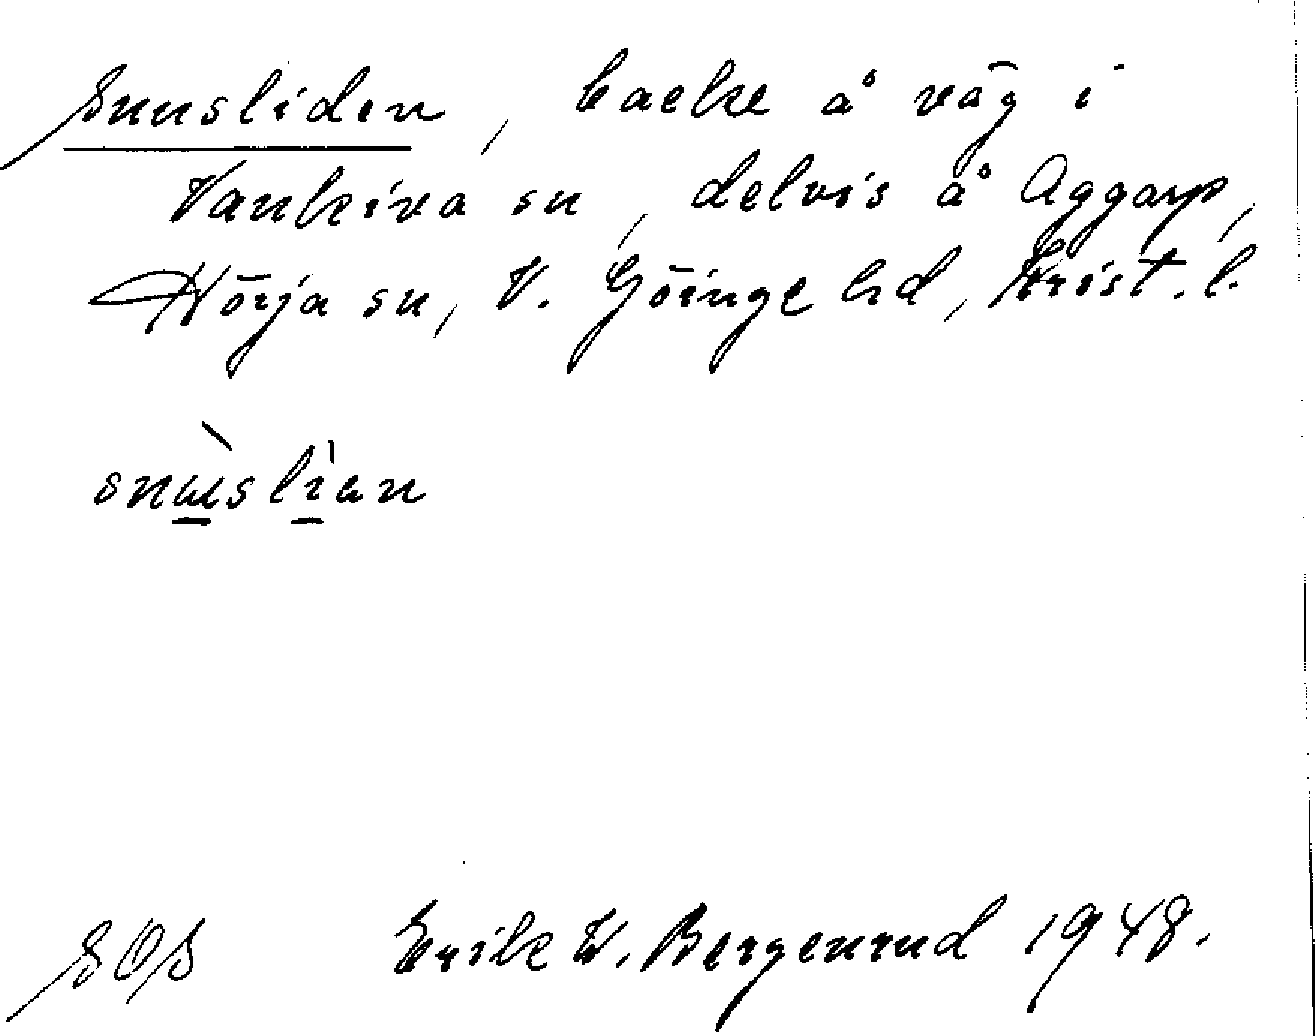 Snusliden, backe å väg i
Vankiva sn, delvis å Aggarp,
Hörja sn, V. Göinge hd, Krist. l.
SOS Erik W. Bergenrud 1948.